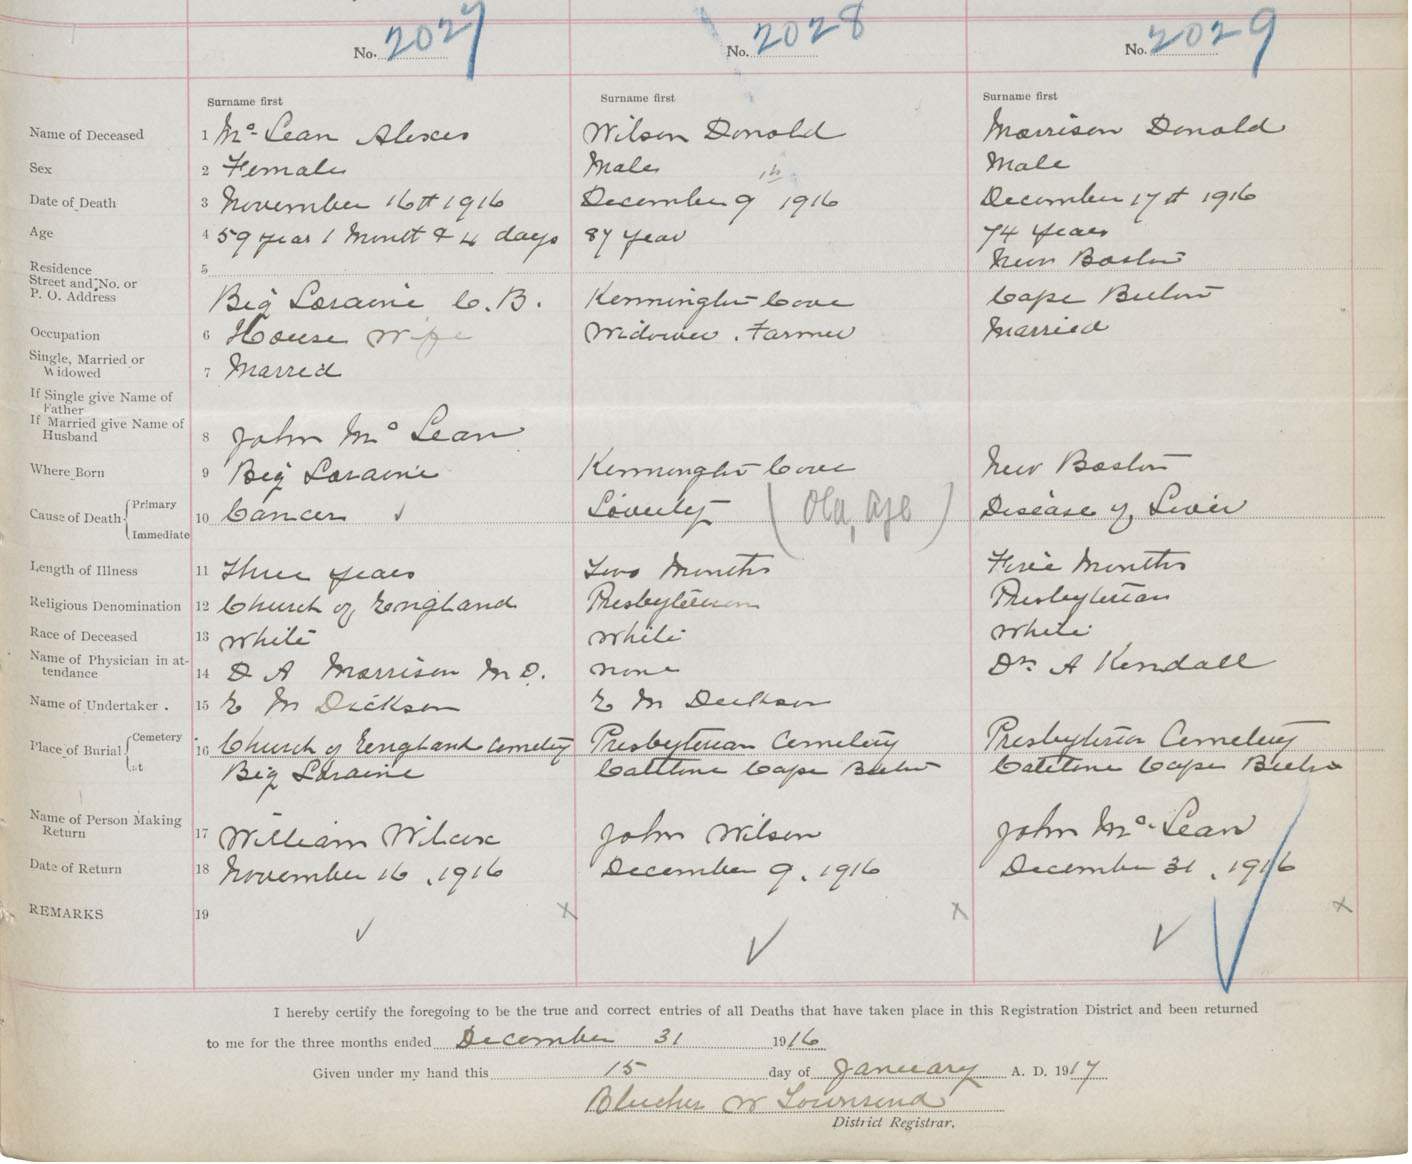 No. 2027 No. 2028 No. 2029
Surname first Surname first Surname first
Name of Deceased 1 Mc Lean Alexes Wilson Donald Morrison Donald
Sex 2 Female Male Male
Date of Death 3 November 16th 1916 December 9th 1916 December 17th 1916
Age 4 59 year 1 Month & 4 days 87 year 74 years
Residence 5 New Boston
Street and No. or
P. O. Address Big Loraine C. B. Kennington Cove Cape Breton
Occupation 6 House Wife Widower . Farmer Married
Single, Married or
Widowed 7 Marred
If Single give Name of
Father
If Married give Name of
Husband 8 John Mc Lean
Where Born 9 Big Loraine Kennington Cove New Boston
Cause of Death Primary
10 Cancer (Old, age) Disease of Liver
Immediate
Length of Illness 11 Three years Two Months Five Months
Religious Denomination 12 Church of England Presbyterian Presbyterian
Race of Deceased 13 White White White
Name of Physician in at-
tendance 14 D A Morrison M D. none Dr. A Kendall
Name of Undertaker . 15 E M Dickson E M Dickson
Place of Burial Cemetery 16 Church of England Cemetery Presbyterian Cemetery Presbyterian Cemetery
at Big Loraine Catalone Cape Breton Catalone Cape Breton
Name of Person Making
Return 17 William Wilcox John Wilson John Mc Lean
Date of Return 18 November 16, 1916 December 9, 1916 December 31, 1916
REMARKS 19
I hereby certify the foregoing to be the true and correct entries of all Deaths that have taken place in this Registration District and been returned
to me for the three months ended December 31 1916
Given under my hand this 15 day of January A. D. 1917
Blucher W Townsend
District Registrar.